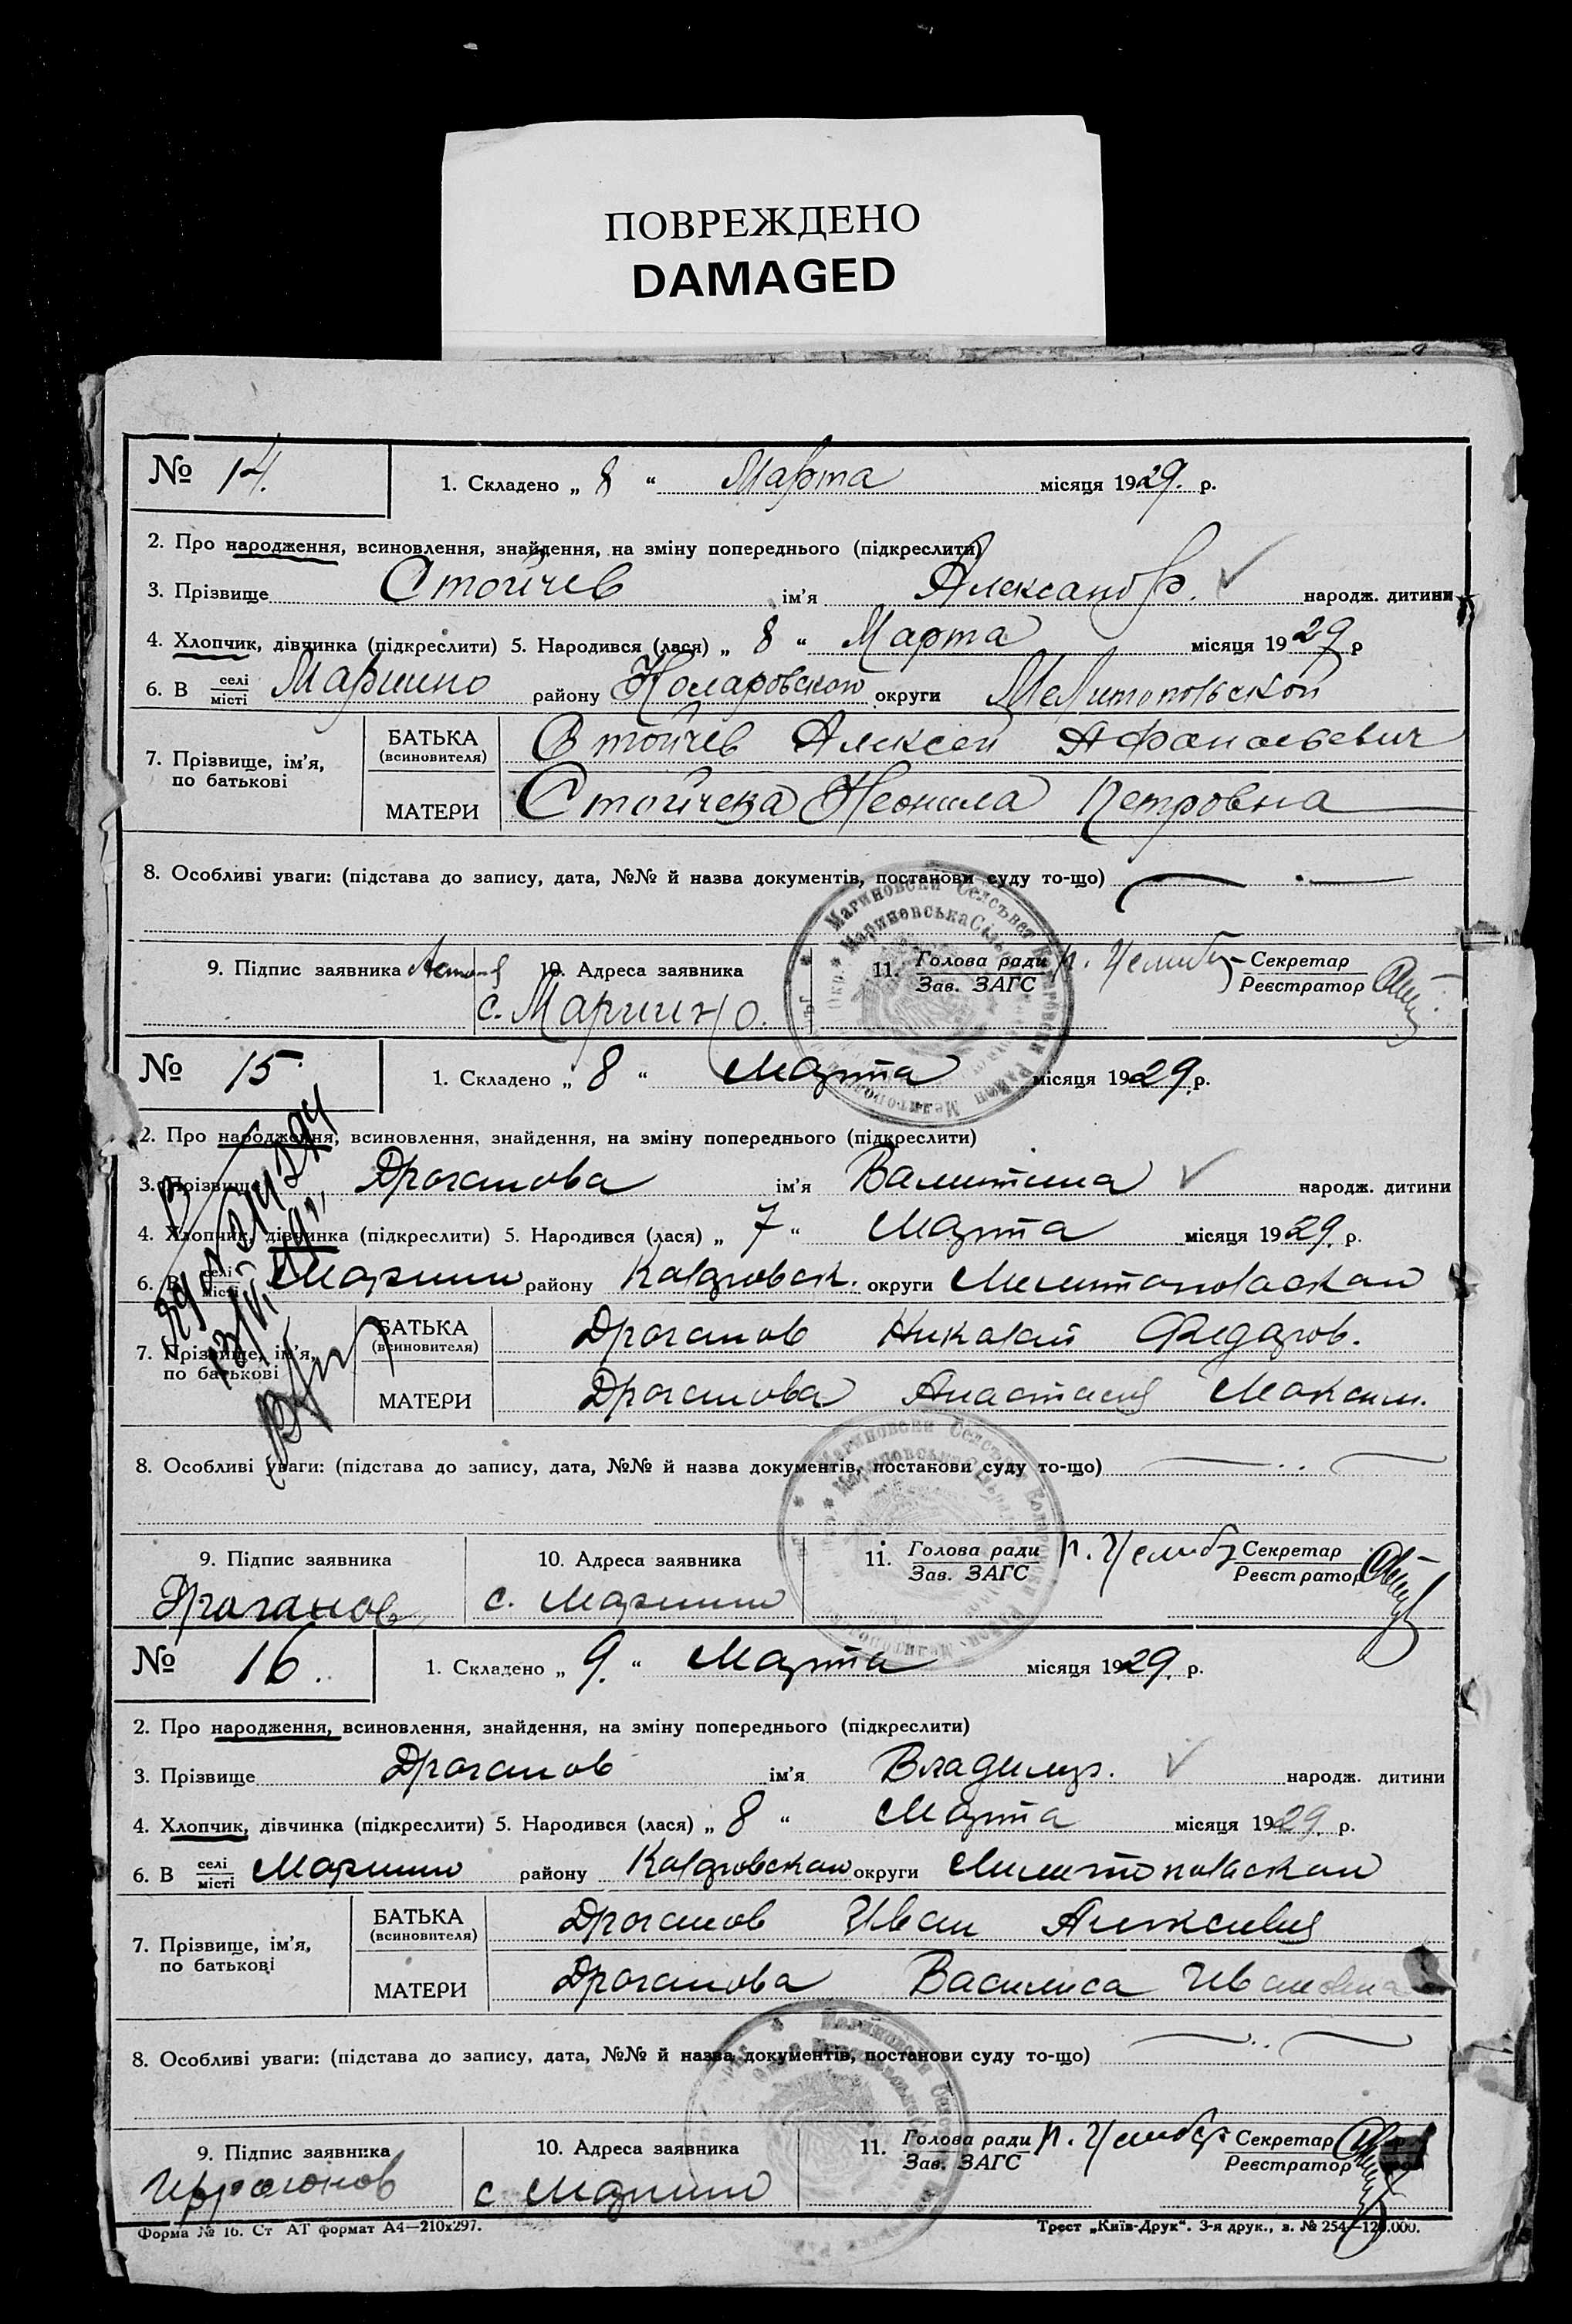 ПОВРЕЖДЕНО
DAMAGED
№ 14. 1. Складено „ 8 “ Марта місяця 1929. р.
2. Про народження, всиновлення, знайдення, на зміну попереднього (підкреслити)
3. Прізвище Стойчев ім'я Александр. народж. дитини
4. Хлопчик, дівчинка (підкреслити) 5. Народився (лася) „ 8 “ Марта місяця 1929 р
6. В селі місті Мариино району Коларовской округи Мелитопольской
7. Прізвище, ім'я, по батькові БАТЬКА (всиновителя) Стойчев Алексей Афанасьевич
МАТЕРИ Стойчева Неонила Петровна
8. Особливі уваги: (підстава до запису, дата, №№ й назва документів, постанови суду то-що)
9. Підпис заявника 10. Адреса заявника 11. Голова ради Зав. ЗАГС Секретар Реєстратор
с. Мариино.
№ 15 1. Складено „ 8 “ Марта місяця 1929. р.
2. Про народження, всиновлення, знайдення, на зміну попереднього (підкреслити)
3. Прізвище Драганова ім'я Валинтина народж. дитини
4. Хлопчик, дівчинка (підкреслити) 5. Народився (лася) „ 7 “ Марта місяця 1929. р.
6. В селі місті Мариино району Коларовск. округи Мелитопольской
7. Прізвище, ім'я, по батькові БАТЬКА (всиновителя) Драганов Николай Федоров.
МАТЕРИ Драганова Анастасия Максим.
8. Особливі уваги: (підстава до запису, дата, №№ й назва документів, постанови суду то-що)
9. Підпис заявника 10. Адреса заявника 11. Голова ради Зав. ЗАГС Секретар Реєстратор
Драганов с. Мариино
№ 16. 1. Складено „ 9. “ Марта місяця 1929. р.
2. Про народження, всиновлення, знайдення, на зміну попереднього (підкреслити)
3. Прізвище Драганов ім'я Владимир. народж. дитини
4. Хлопчик, дівчинка (підкреслити) 5. Народився (лася) „ 8 “ Марта місяця 1929. р.
6. В селі місті Мариино району Коларовской округи Мелитопольской
7. Прізвище, ім'я, по батькові БАТЬКА (всиновителя) Драганов Иван Алексеевич
МАТЕРИ Драганова Василиса Ивановна
8. Особливі уваги: (підстава до запису, дата, №№ й назва документів, постанови суду то-що)
9. Підпис заявника 10. Адреса заявника 11. Голова ради Зав. ЗАГС Секретар Реєстратор
с Мариино
Форма № 16. Ст АТ формат А4—210х297. Трест „Київ-Друк“. 3-я друк., з. № 254—12